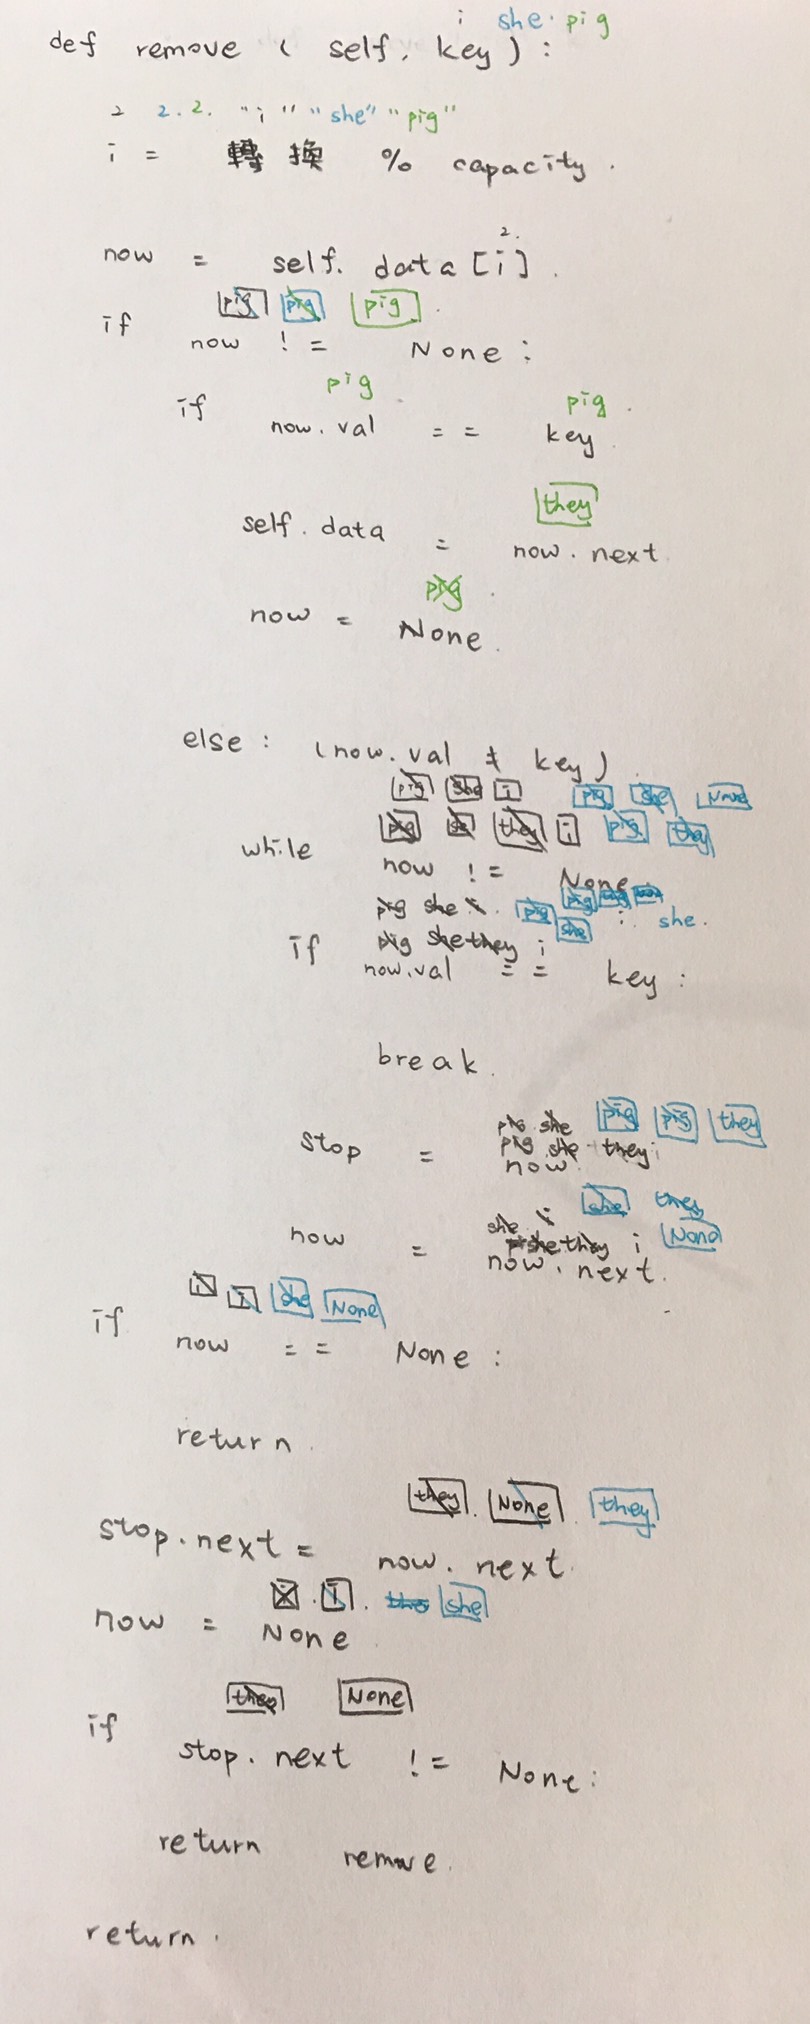 i she. pig
def remove ( self, key ) :
2 2. 2. "i" "she" "pig"
i = 轉換 % capacity .
2.
now = self. data [i] .
pig pig pig .
if now != None :
pig pig .
if now. val == key .
they
self. data = now. next
pig .
now = None .
else : ( now. val ≠ key )
pig she i pig she None
pig she they i pig they
while now != None
pig she i . pig pig i. she.
pig she they i she
if now.val == key :
break .
pig she pig pig they
pig she they i
stop = now
she i she they
she they i None
now = now. next .
i i she None
if now == None :
return .
they . None . they
stop.next = now. next .
i . i . she
now = None
they None
if stop. next != None :
return remove .
return .